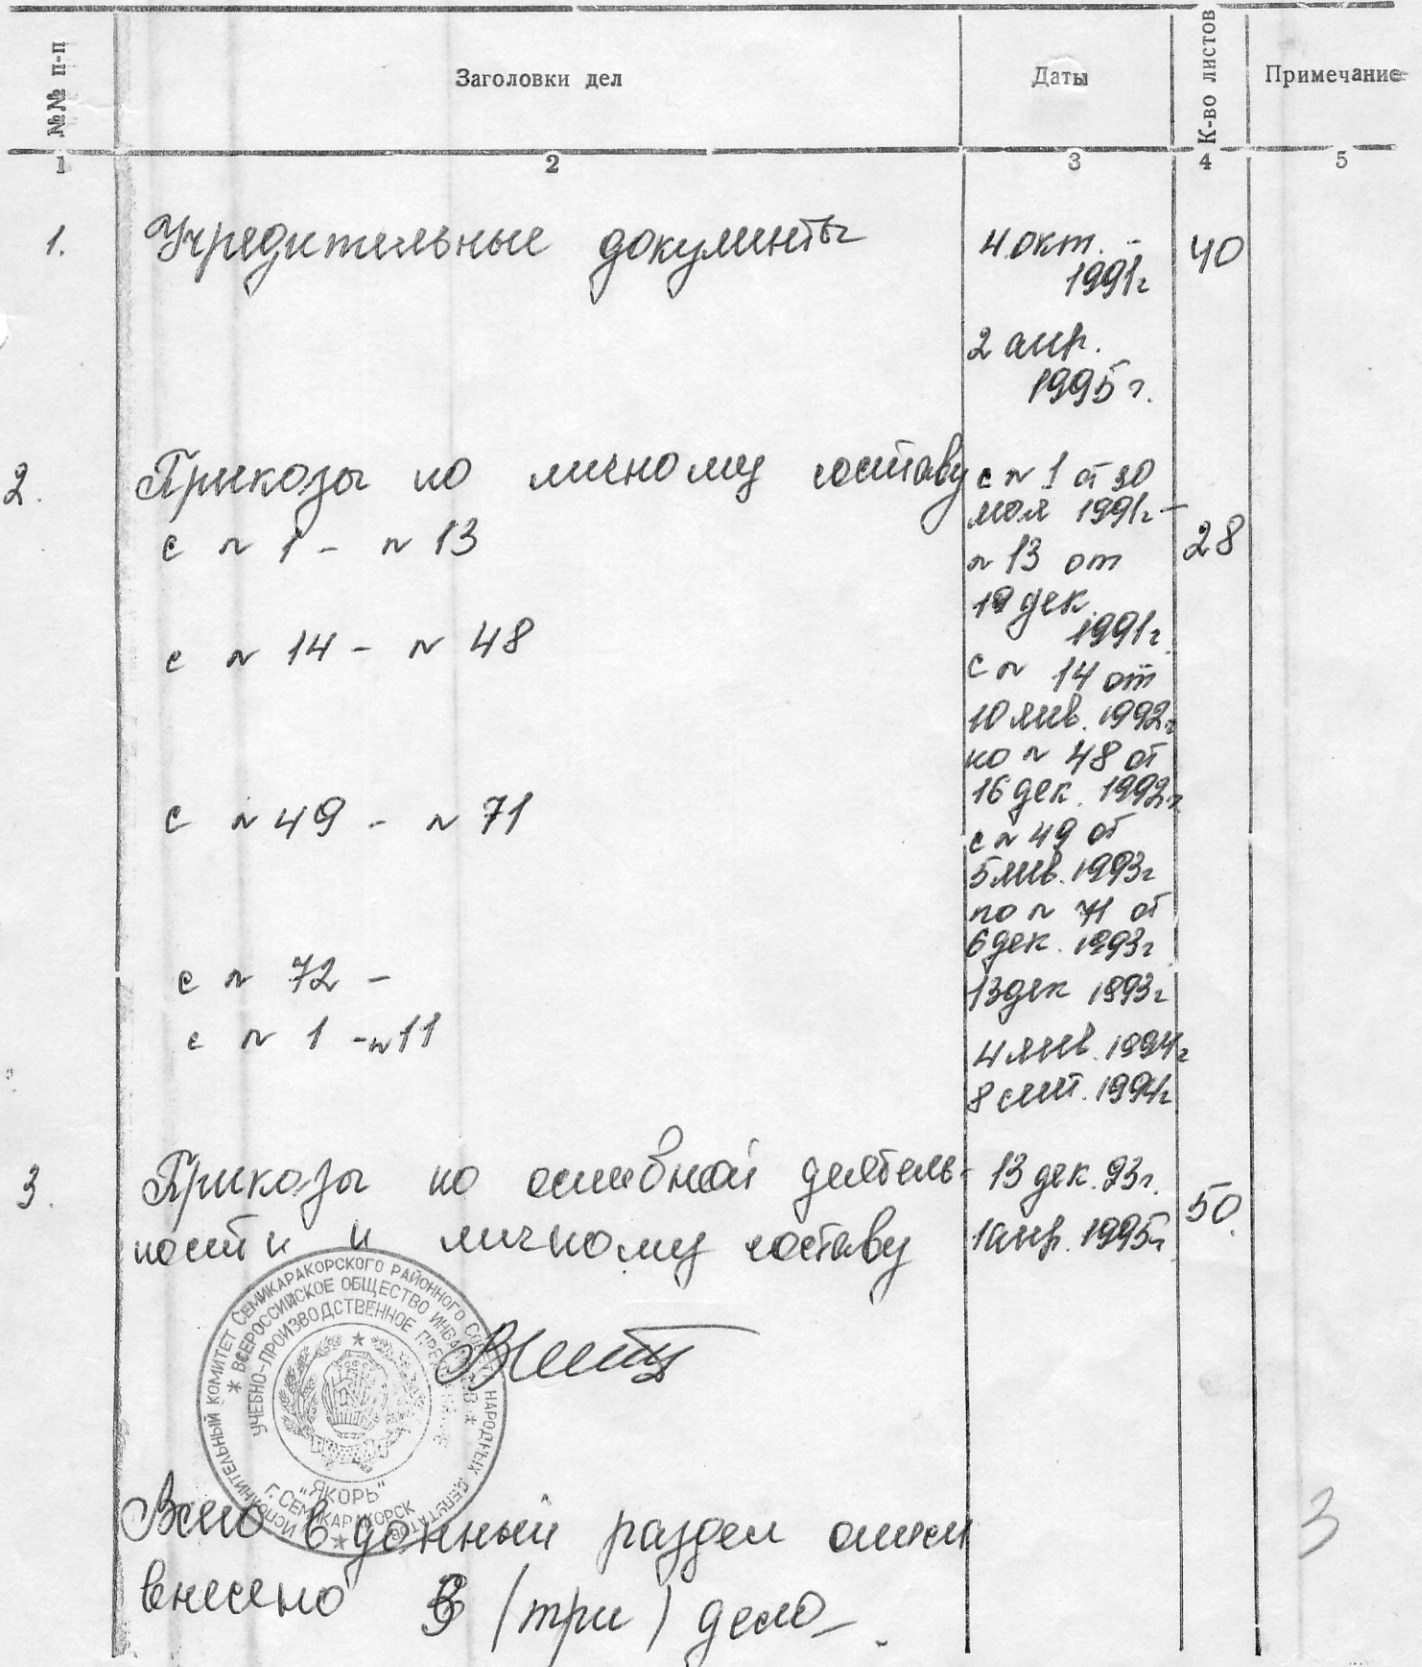 №№ п-п Заголовки дел Даты К-во листов Примечание
1 2 3 4 5
1. Учредительные документы 4 окт. - 40
1991г
2 апр.
1995 г.
2. Приказы по личному составу с № 1 от 30
мая 1991г -
с № 1 - № 13 № 13 от 28
19 дек.
1991г
с № 14 - № 48 с № 14 от
10 янв. 1992г
по № 48 от
16 дек. 1992г
с № 49 - № 71 с № 49 от
5 янв. 1993г
по № 71 от
6 дек. 1993г
с № 72 - 13 дек 1993г
с № 1 - № 11 4 янв. 1994г
8 сент. 1994г
3. Приказы по основной деятель- 13 дек. 93г.
ности и личному составу 1 апр. 1995г 50.
ИСПОЛНИТЕЛЬНЫЙ КОМИТЕТ СЕМИКАРАКОРСКОГО РАЙОННОГО СОВЕТА НАРОДНЫХ ДЕПУТАТОВ
* ВСЕРОССИЙСКОЕ ОБЩЕСТВО ИНВАЛИДОВ *
УЧЕБНО-ПРОИЗВОДСТВЕННОЕ ПРЕДПРИЯТИЕ
"ЯКОРЬ"
Г. СЕМИКАРАКОРСК
Всего в данный раздел описи 3
внесено 3 (три) дела.